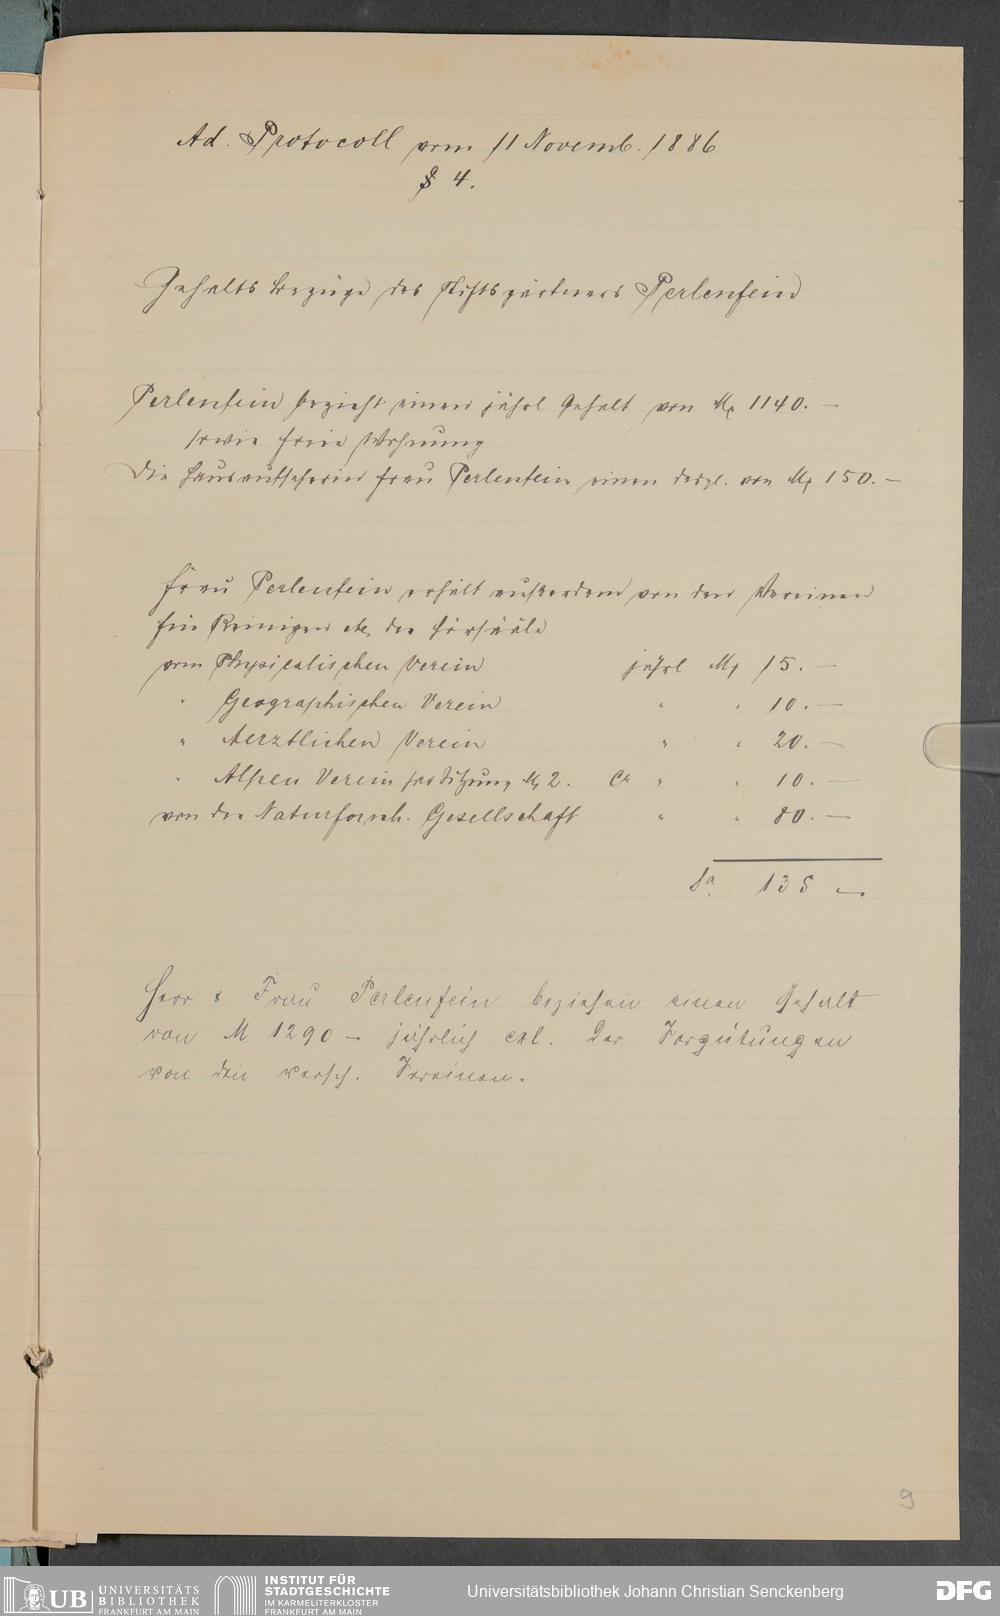 Ad. Protocoll vom 11 Novemb. 1886
§ 4.
Gehalts bezüge des Stiftsgärtners Perlenfein
Perlenfein bezieht einen jährl Gehalt von M 1140.—
sowie freie Wohnung
Die Hausaufseherin Frau Perlenfein einen desgl. von M 150.—
Frau Perlenfein erhält außerdem von den Vereinen
für Reinigen etc. der Hörsääle
vom Physicalischen Verein jährl M 15.—
" Geographischen Verein " " 10.—
" Aerztlichen Verein " " 20.—
" Alpen Verein pro Sitzung M 2. Ca " " 10.—
von der Naturforsch. Gesellschaft " " 80.—
Sa. 135 —
Herr & Frau Perlenfein beziehen einen Gehalt
von M 1290 — jährlich exl. der Vergütungen
von den versch. Vereinen.
9
UB UNIVERSITÄTS
BIBLIOTHEK
FRANKFURT AM MAIN
INSTITUT FÜR
STADTGESCHICHTE
IM KARMELITERKLOSTER
FRANKFURT AM MAIN
Universitätsbibliothek Johann Christian Senckenberg
DFG